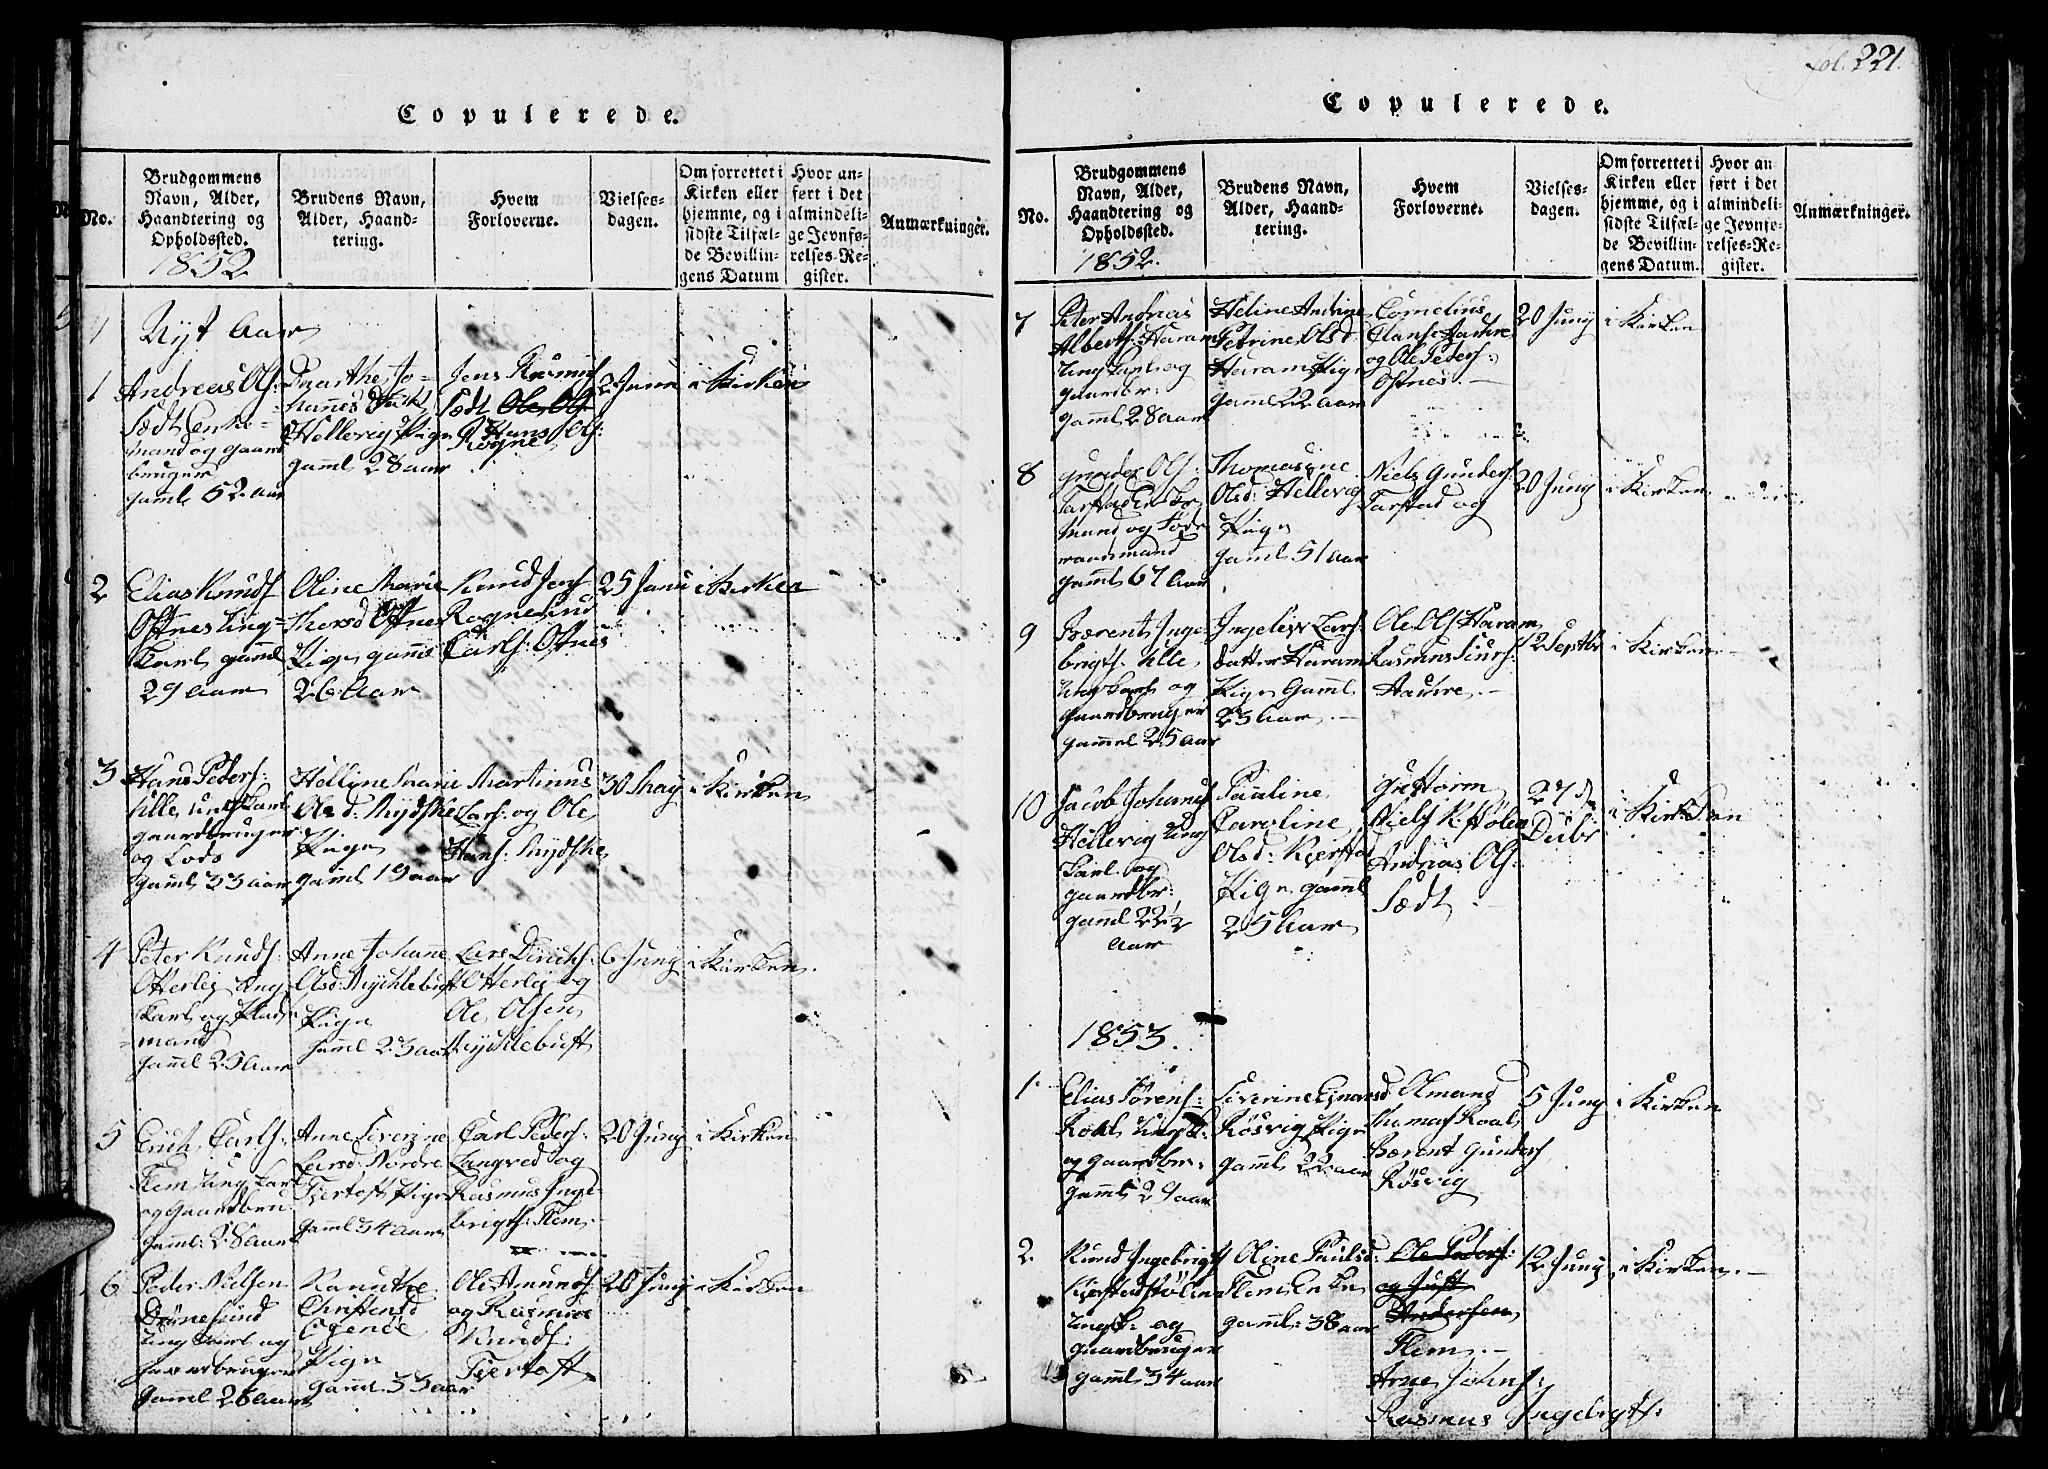 Copulerede.
No.
Brudgommens
Navn, Alder,
Haandtering og
Opholdssted.
1852
Brudens Navn,
Alder, Haand-
tering.
Hvem
Forloverne.
Vielses-
dagen.
Om forrettet i
Kirken eller
hjemme, og i
sidste Tilfæl-
de Bevillin-
gens Datum
Hvor an-
ført i det
almindeli-
ge Jevnfø-
relses-Re-
gister.
Anmærkninger.
Nyt Aar
1
Andreas Ols:
Sædt Enke-
mand og gaard
bruger
gaml 52 aar
Johannes
Hellevig Pige
gaml 28 aar
Jens Rasmus
Sædt Ole Ols
Hans Ols:
Rogne
2 Janu
i Kirken
2
Elias Knuds
Ostnes Ung-
karl gaml
29 Aar
Oline Marie
Ostnes
Pige gaml
26 Aar
Knud Jens
Rogne
Carls: Ostnes
25 Janu
i Kirken
3
Hans Peders:
Ulle ungkarl
gaardbruger
og Lods
gaml 33 aar
Helline Marie
Olsd: Mydske
Pige
gaml 19 aar
Martinus
Lars: og Ole
Hans: Mydske
30 May
i Kirken
4
Peter Knuds:
Otterlej Ung
karl og Plads
mand
gaml 25 Aar
Anne Johanne
Olsd: Nychlebust
Pige
gaml 23 aar
Lars Dinichs:
Otterlej og
Ole Olsen
Nychlebust
6 Juny
i Kirken.
5
Erich Carls:
Flem Ung karl
og gaardbru
gaml: 28 aar
Anne Severine
Larsd: Nordre
Fjertoft Pige
gaml 34 aar
Carl Peders:
Langved og
Rasmus Inge-
brigts: Flem.
20 Juny
i Kirken
6
Peder Nielsen
Ung karl og
gaardbruger
gaml 26 Aar
Knuthe
Christensd
Pige
gaml. 33 aar
Ole Amunds:
og Rasmus
Knuds:
Fjertoft
20 Juny
i Kirken
fol. 221.
Copulerede.
No.
Brudgommens
Navn, Alder,
Haandtering og
Opholdssted.
1852.
Brudens Navn,
Alder, Haand-
tering.
Hvem
Forloverne.
Vielses-
dagen.
Om forrettet i
Kirken eller
hjemme, og i
sidste Tilfæl-
de Bevillin-
gens Datum.
Hvor an
ført i det
almindeli-
ge Jevnfø-
relses-Re-
gister.
Anmærkninger.
7
Peter Andreas
Alberts: Haram
Ung karl og
gaardbr:
gaml 28 aar
Heline Andrine
Petrine Olsd
Haram Pige
gaml 22 aar
Cornelius
Clans: Hauhre
og Ole Peders:
Ostnes.
20 Juny
i Kirken
8
Gunder Ols:
Tarstad Enke
mand og Føde
raadsmand
gaml 67 Aar
Thomasine
Olsd: Hellevig
Pige
gaml 51 Aar
Niels Gunders:
Tarstad og
20 Juny
i Kirken
9
Bærent Inge
brigts. Ulle
Ung karl og
gaardbruger
gammel 25 aar
Ingeleiv Lars:
datter Haram
Pige Gaml
23 Aar.
Ole Ols Haram
Rasmus Siurs:
Hauhre.
12 Septbr
i Kirken.
10
Jacob Johans
Hellevig Ung
karl og
gaardbr:
gaml 22½
aar
Pauline
Caroline
Olsd: Kjerstad
Pige gaml
25 Aar
Guttorm
Niels K. Stølen
Andreas Ols:
Sædt.
27 d
i Kirken
1853.
1
Elias Sørens:
Roal Ungk:
og Gaardbr:
gaml 29 aar
Severine Ejnarsd
Røsvig Pige
gaml 22 aar
Olmand
Thomas Roal
Bærent Gunders
Røsvig
5 Juny
i Kirken
2.
Knud Ingebrigts
Kjerstadstølen
Ungk: og
Gaardbruger
gaml 34 aar
Oline Paulsd:
Flem Enke
gaml: 38 aar
Ole Peders:
og Just
Andersen
Flem.
Arne Johns:
Rasmus Ingebrigts:
12 Juny
i Kirken.